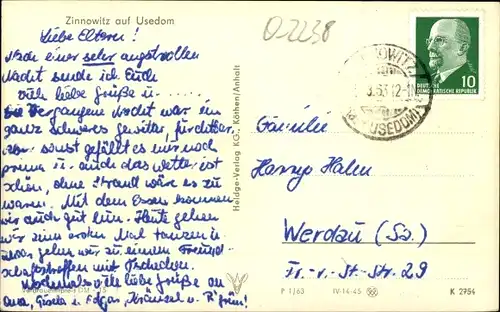 Zinnowitz auf Usedom
O-2238
Liebe Eltern!
Nach einer sehr angstvollen
Nacht sende ich Euch
viele liebe Grüße u. . . .
Vergangene Nacht war ein
ganz schweres Gewitter, fürchter.
sonst gefällt es mir noch
prima u. auch das Wetter ist
schön, ohne Strand wäre es zu
warm. Mit dem Essen kommen
wir auch gut hin. Heute gehen
wir zum ersten Mal tanzen u.
zwar gehen wir zu einem Freund-
schaftstreffen mit Tschechen.
Nochmals viele liebe Grüße an
Oma, Gisela u. Edgar,
Heldge-Verlag KG, Köthen/Anhalt
ZINNOWITZ
USEDOM
10
DEUTSCHE
DEMOKRATISCHE REPUBLIK
Familie
Harry Hahn
Werdau (Sa.)
Fr.-v.-St-Str. 29
P 1/63 IV-14-45 K 2954